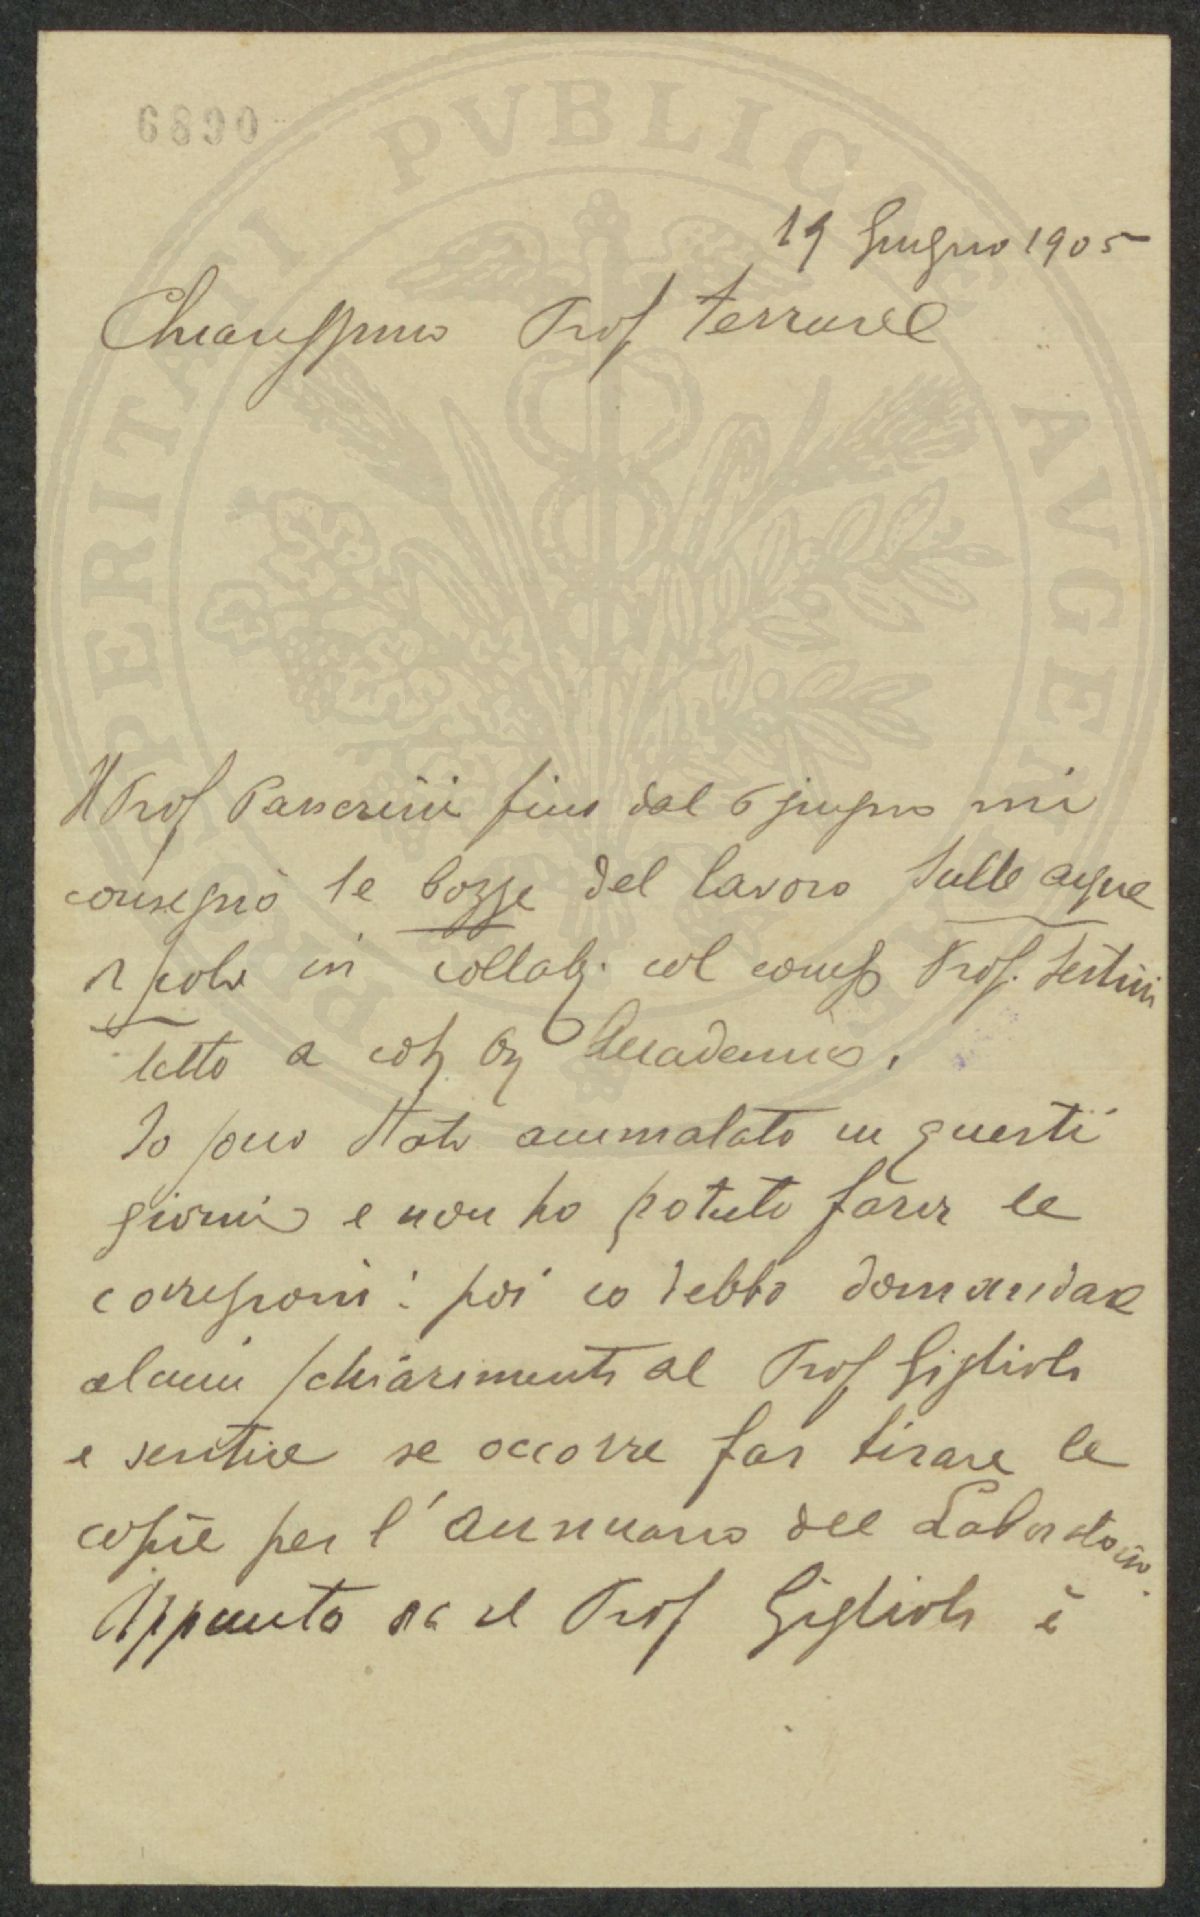 6890
PROSPERITATI PVBLICAE AVGENDAE
19 Giugno 1905
Chiarissimo Prof Ferrari
Il Prof Passerini fino dal 6 giugno mi
consegnò le bozze del lavoro Sulle acque
in collab. col Prof. Sestini
letto a Accademia.
Io sono stato ammalato in questi
giorni e non ho potuto farir le
correzioni: poi io debbo domandare
alcuni schiarimenti al Prof Giglioli
e sentire se occorre far tirare le
copie per l'annuario del Laboratorio.
Appunto il Prof Giglioli è